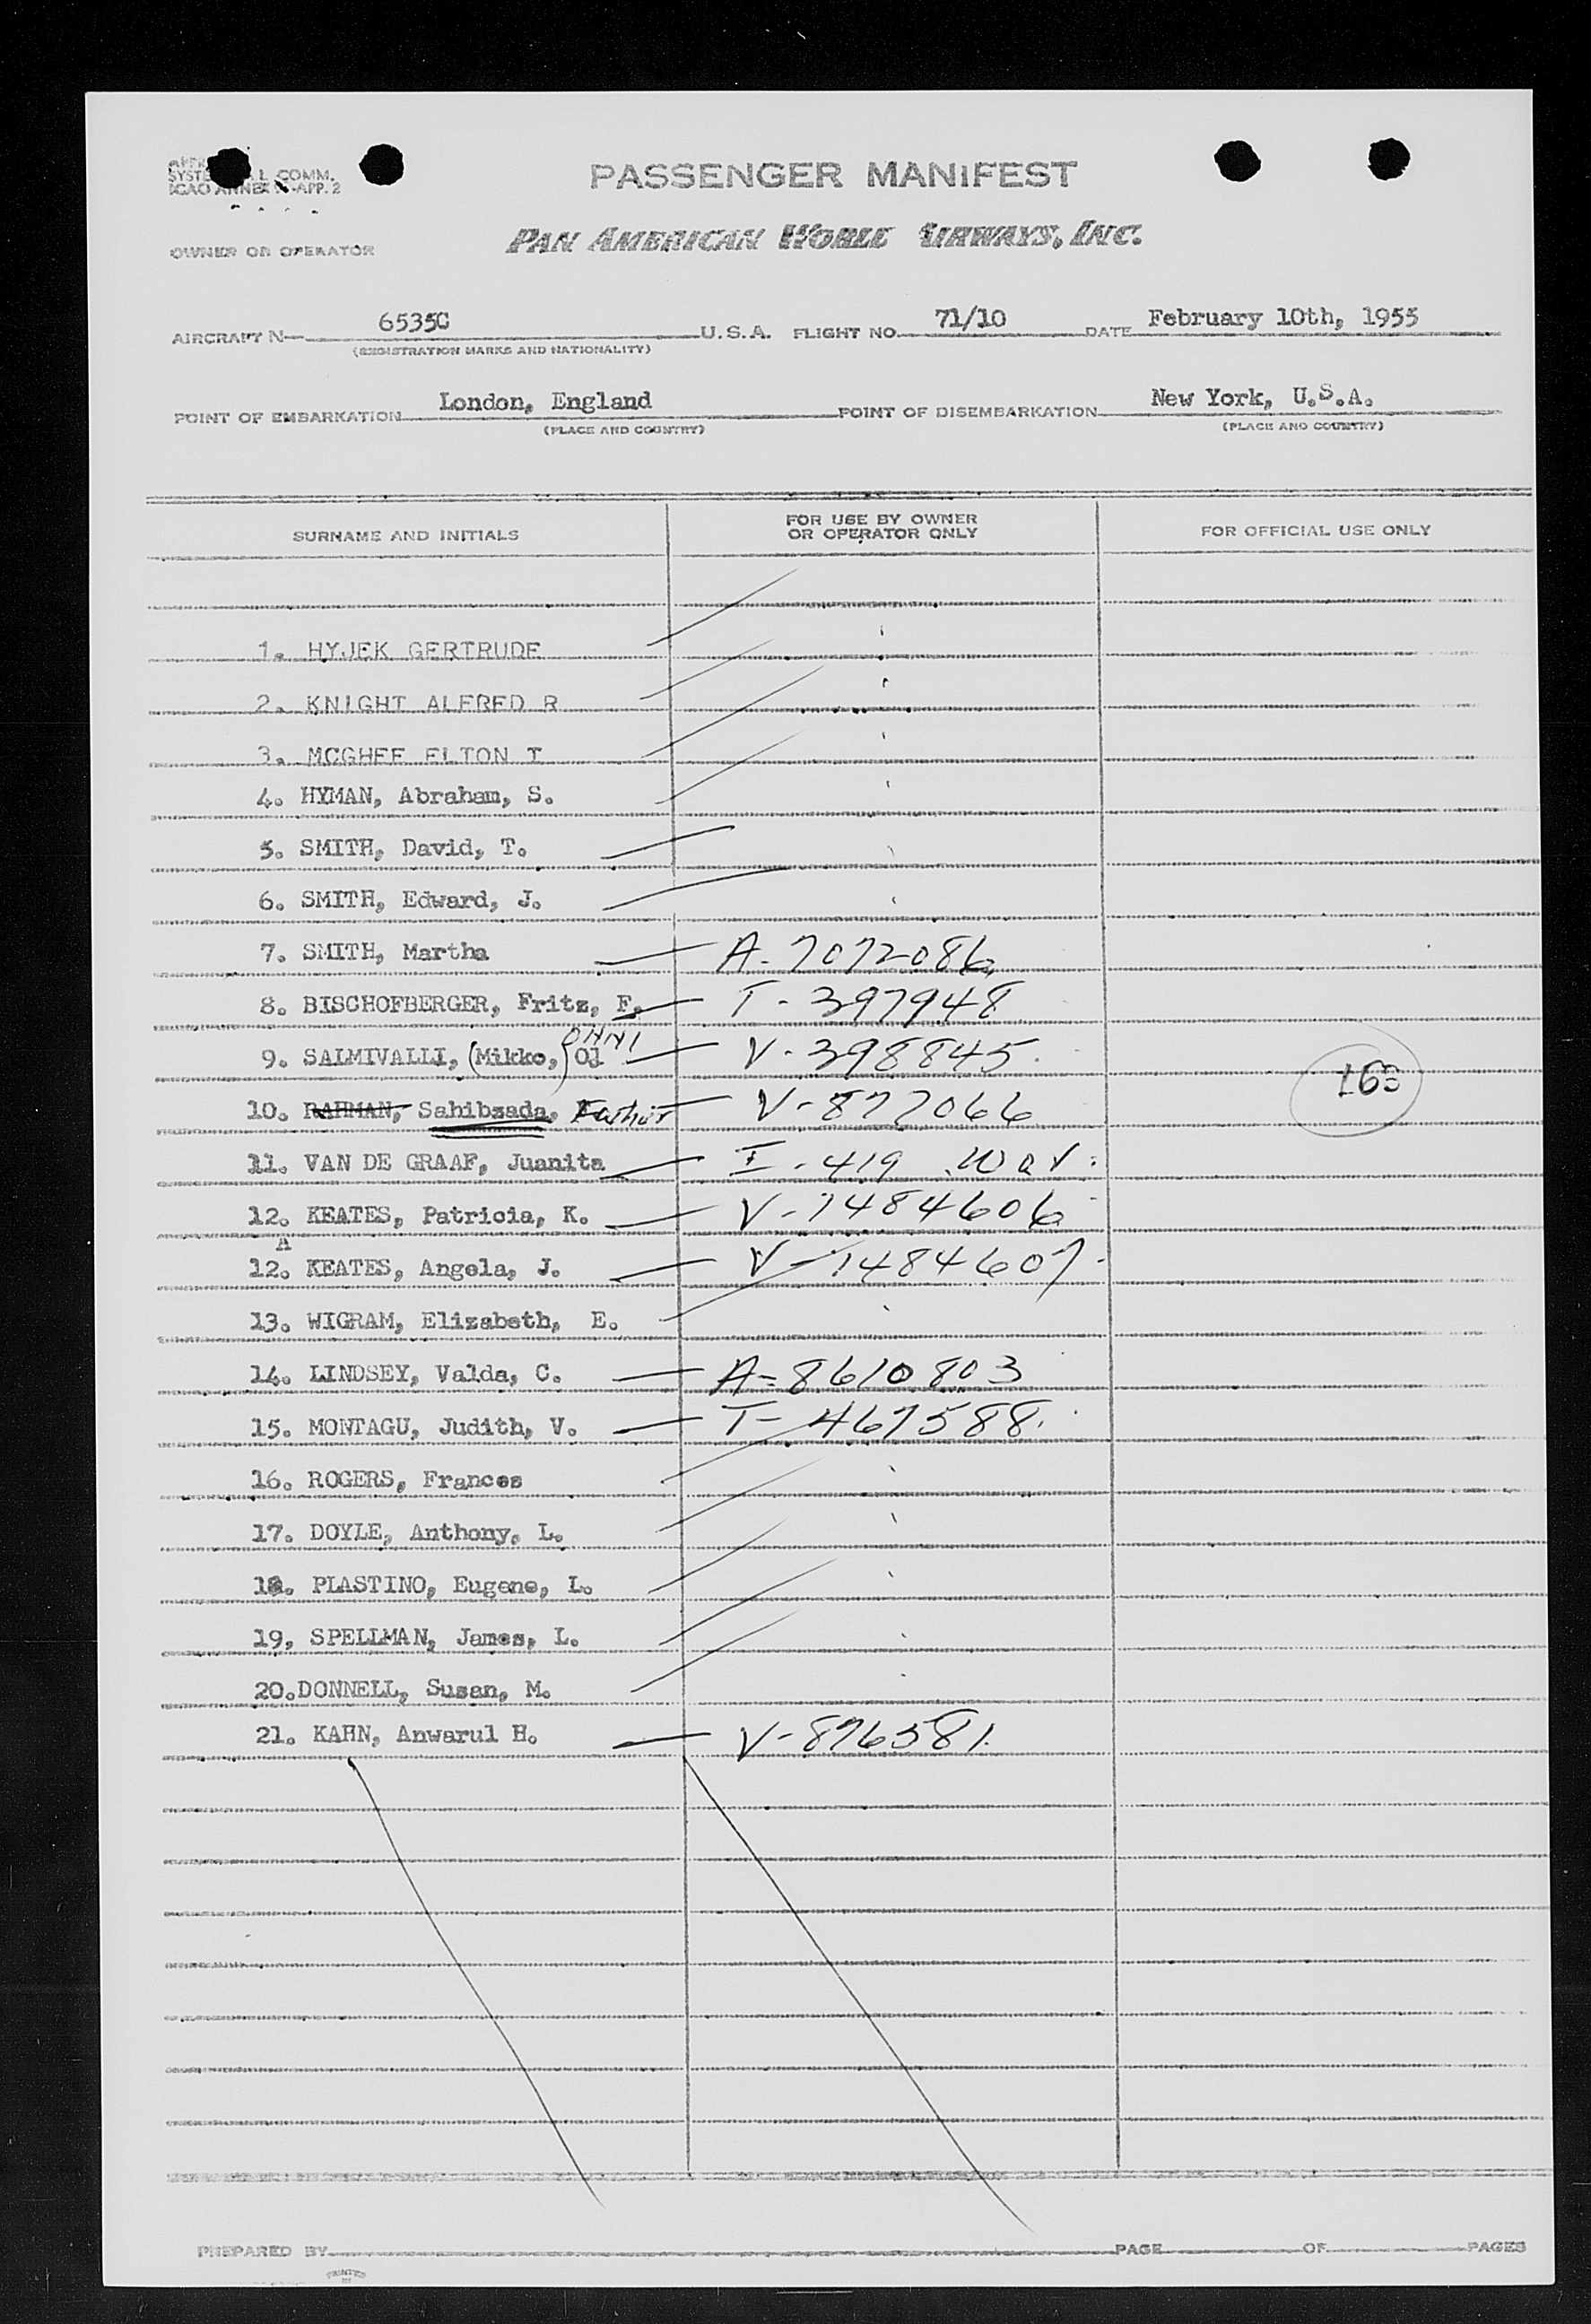 SYSTE L COMM.
ICAO ANNEX 9-APP. 2
PASSENGER MANIFEST
OWNER OR OPERATOR
PAN AMERICAN WORLD AIRWAYS, INC.
AIRCRAFT N 6535C U.S.A. FLIGHT NO. 71/10 DATE February 10th, 1955
(REGISTRATION MARKS AND NATIONALITY)
POINT OF EMBARKATION London, England POINT OF DISEMBARKATION New York, U.S.A.
(PLACE AND COUNTRY) (PLACE AND COUNTRY)
SURNAME AND INITIALS FOR USE BY OWNER OR OPERATOR ONLY FOR OFFICIAL USE ONLY
1. HYJEK GERTRUDE
2. KNIGHT ALFRED R
3. MCGHEE ELTON T
4. HYMAN, Abraham, S.
5. SMITH, David, T.
6. SMITH, Edward, J.
7. SMITH, Martha A-7072086
8. BISCHOFBERGER, Fritz, F. T-397948
OHNI
9. SALMIVALLI, (Mikko,) OJ V-398845
168
10. RAHMAN, Sahibzada, V-877066
11. VAN DE GRAAF, Juanita I-419 War.
12. KEATES, Patricia, K. V-1484606
A
12. KEATES, Angela, J. V-1484607
13. WIGRAM, Elizabeth, E.
14. LINDSEY, Valda, C. A-8610803
15. MONTAGU, Judith, V. T-467588
16. ROGERS, Frances
17. DOYLE, Anthony, L.
18. PLASTINO, Eugene, L.
19, SPELLMAN, James, L.
20.DONNELL, Susan, M.
21. KAHN, Anwarul H. V-876581
PREPARED BY PAGE OF PAGES
PRINTED